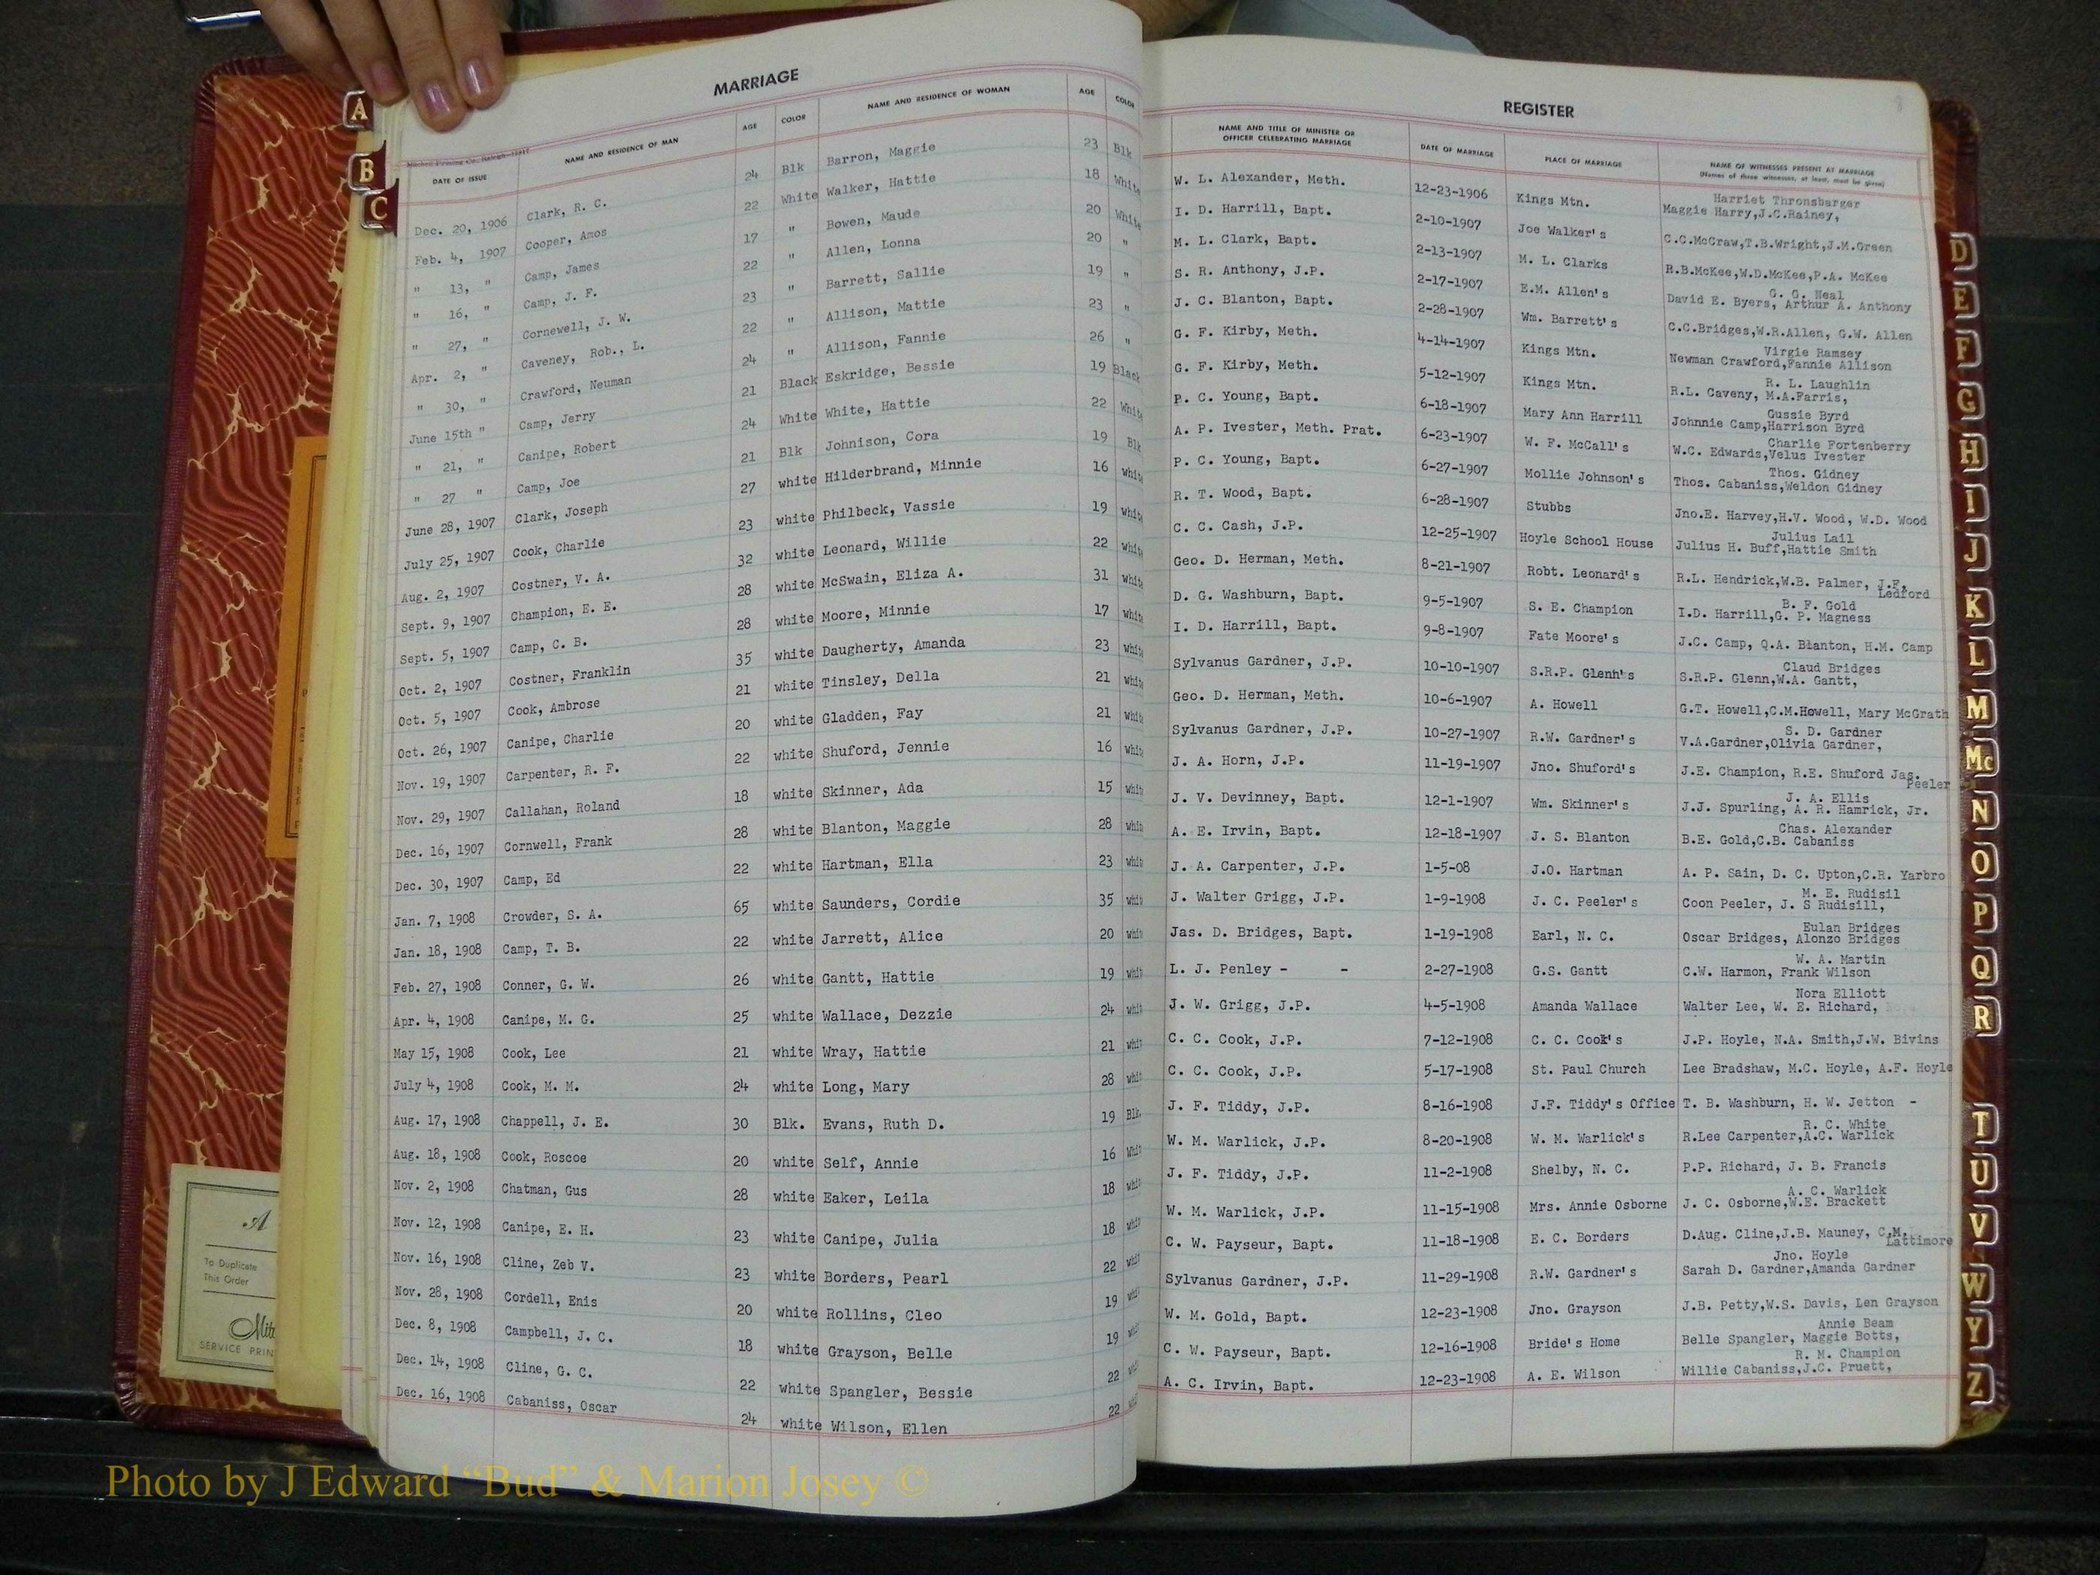 MARRIAGE
Mitchell Printing Co., Raleigh
DATE OF ISSUE NAME AND RESIDENCE OF MAN AGE COLOR NAME AND RESIDENCE OF WOMAN AGE COLOR
Dec. 20, 1906 Clark, R. C. 24 Blk Barron, Maggie 23 Blk
Feb. 4, 1907 Cooper, Amos 22 White Walker, Hattie 18 White
" 13, " Camp, James 17 " Bowen, Maude 20 White
" 16, " Camp, J. F. 22 " Allen, Lonna 20 "
" 27, " Cornewell, J. W. 23 " Barrett, Sallie 19 "
Apr. 2, " Caveney, Rob., L. 22 " Allison, Mattie 23 "
" 30, " Crawford, Neuman 24 " Allison, Fannie 26 "
June 15th " Camp, Jerry 21 Black Eskridge, Bessie 19 Black
" 21, " Canipe, Robert 24 White White, Hattie 22 White
" 27 " Camp, Joe 21 Blk Johnison, Cora 19 Blk
June 28, 1907 Clark, Joseph 27 white Hilderbrand, Minnie 16 white
July 25, 1907 Cook, Charlie 23 white Philbeck, Vassie 19 white
Aug. 2, 1907 Costner, V. A. 32 white Leonard, Willie 22 white
Sept. 9, 1907 Champion, E. E. 28 white McSwain, Eliza A. 31 white
Sept. 5, 1907 Camp, C. B. 28 white Moore, Minnie 17 white
Oct. 2, 1907 Costner, Franklin 35 white Daugherty, Amanda 23 white
Oct. 5, 1907 Cook, Ambrose 21 white Tinsley, Della 21 white
Oct. 26, 1907 Canipe, Charlie 20 white Gladden, Fay 21 white
Nov. 19, 1907 Carpenter, R. F. 22 white Shuford, Jennie 16 white
Nov. 29, 1907 Callahan, Roland 18 white Skinner, Ada 15 whit
Dec. 16, 1907 Cornwell, Frank 28 white Blanton, Maggie 28 whit
Dec. 30, 1907 Camp, Ed 22 white Hartman, Ella 23 whit
Jan. 7, 1908 Crowder, S. A. 65 white Saunders, Cordie 35 whit
Jan. 18, 1908 Camp, T. B. 22 white Jarrett, Alice 20 whit
Feb. 27, 1908 Conner, G. W. 26 white Gantt, Hattie 19 whit
Apr. 4, 1908 Canipe, M. G. 25 white Wallace, Dezzie 24 whit
May 15, 1908 Cook, Lee 21 white Wray, Hattie 21 whit
July 4, 1908 Cook, M. M. 24 white Long, Mary 28 whit
Aug. 17, 1908 Chappell, J. E. 30 Blk. Evans, Ruth D. 19 Blk.
Aug. 18, 1908 Cook, Roscoe 20 white Self, Annie 16 Whit
Nov. 2, 1908 Chatman, Gus 28 white Eaker, Leila 18 whit
Nov. 12, 1908 Canipe, E. H. 23 white Canipe, Julia 18 whit
Nov. 16, 1908 Cline, Zeb V. 23 white Borders, Pearl 22 whit
Nov. 28, 1908 Cordell, Enis 20 white Rollins, Cleo 19 whit
Dec. 8, 1908 Campbell, J. C. 18 white Grayson, Belle 19 whit
Dec. 14, 1908 Cline, G. C. 22 white Spangler, Bessie 22 whit
Dec. 16, 1908 Cabaniss, Oscar 24 white Wilson, Ellen 22 whit
REGISTER
NAME AND TITLE OF MINISTER OR
OFFICER CELEBRATING MARRIAGE DATE OF MARRIAGE PLACE OF MARRIAGE NAME OF WITNESSES PRESENT AT MARRIAGE
(Names of three witnesses, at least, must be given)
Harriet Thronsbarger
W. L. Alexander, Meth. 12-23-1906 Kings Mtn. Maggie Harry,J.C.Rainey,
I. D. Harrill, Bapt. 2-10-1907 Joe Walker's C.C.McCraw,T.B.Wright,J.M.Green
M. L. Clark, Bapt. 2-13-1907 M. L. Clarks R.B.McKee,W.D.McKee,P.A. McKee
G. G. Neal
S. R. Anthony, J.P. 2-17-1907 E.M. Allen's David E. Byers, Arthur A. Anthony
J. C. Blanton, Bapt. 2-28-1907 Wm. Barrett's C.C.Bridges,W.R.Allen, G.W. Allen
Virgie Ramsey
G. F. Kirby, Meth. 4-14-1907 Kings Mtn. Newman Crawford,Fannie Allison
R. L. Laughlin
G. F. Kirby, Meth. 5-12-1907 Kings Mtn. R.L. Caveny, M.A.Farris,
Gussie Byrd
P. C. Young, Bapt. 6-18-1907 Mary Ann Harrill Johnnie Camp,Harrison Byrd
Charlie Fortenberry
A. P. Ivester, Meth. Prat. 6-23-1907 W. F. McCall's W.C. Edwards,Velus Ivester
Thos. Gidney
P. C. Young, Bapt. 6-27-1907 Mollie Johnson's Thos. Cabaniss,Weldon Gidney
R. T. Wood, Bapt. 6-28-1907 Stubbs Jno.E. Harvey,H.V. Wood, W.D. Wood
Julius Lail
C. C. Cash, J.P. 12-25-1907 Hoyle School House Julius H. Buff,Hattie Smith
Geo. D. Herman, Meth. 8-21-1907 Robt. Leonard's R.L. Hendrick,W.B. Palmer, J.F.
Ledford
B. F. Gold
D. G. Washburn, Bapt. 9-5-1907 S. E. Champion I.D. Harrill,G. P. Magness
I. D. Harrill, Bapt. 9-8-1907 Fate Moore's J.C. Camp, Q.A. Blanton, H.M. Camp
Claud Bridges
Sylvanus Gardner, J.P. 10-10-1907 S.R.P. Glenn's S.R.P. Glenn,W.A. Gantt,
Geo. D. Herman, Meth. 10-6-1907 A. Howell G.T. Howell,C.M.Howell, Mary McGrath
S. D. Gardner
Sylvanus Gardner, J.P. 10-27-1907 R.W. Gardner's V.A.Gardner,Olivia Gardner,
J. A. Horn, J.P. 11-19-1907 Jno. Shuford's J.E. Champion, R.E. Shuford Jas.
Peeler
J. A. Ellis
J. V. Devinney, Bapt. 12-1-1907 Wm. Skinner's J.J. Spurling, A. R. Hamrick, Jr.
Chas. Alexander
A. E. Irvin, Bapt. 12-18-1907 J. S. Blanton B.E. Gold,C.B. Cabaniss
J. A. Carpenter, J.P. 1-5-08 J.O. Hartman A. P. Sain, D. C. Upton,C.R. Yarbro
M. E. Rudisil
J. Walter Grigg, J.P. 1-9-1908 J. C. Peeler's Coon Peeler, J. S Rudisill,
Eulan Bridges
Jas. D. Bridges, Bapt. 1-19-1908 Earl, N. C. Oscar Bridges, Alonzo Bridges
W. A. Martin
L. J. Penley - - 2-27-1908 G.S. Gantt C.W. Harmon, Frank Wilson
Nora Elliott
J. W. Grigg, J.P. 4-5-1908 Amanda Wallace Walter Lee, W. E. Richard,
C. C. Cook, J.P. 7-12-1908 C. C. Cook's J.P. Hoyle, N.A. Smith,J.W. Bivins
C. C. Cook, J.P. 5-17-1908 St. Paul Church Lee Bradshaw, M.C. Hoyle, A.F. Hoyle
J. F. Tiddy, J.P. 8-16-1908 J.F. Tiddy's Office T. B. Washburn, H. W. Jetton -
R. C. White
W. M. Warlick, J.P. 8-20-1908 W. M. Warlick's R.Lee Carpenter,A.C. Warlick
J. F. Tiddy, J.P. 11-2-1908 Shelby, N. C. P.P. Richard, J. B. Francis
A. C. Warlick
W. M. Warlick, J.P. 11-15-1908 Mrs. Annie Osborne J. C. Osborne,W.E. Brackett
C. W. Payseur, Bapt. 11-18-1908 E. C. Borders D.Aug. Cline,J.B. Mauney, C.M.
Lattimore
Jno. Hoyle
Sylvanus Gardner, J.P. 11-29-1908 R.W. Gardner's Sarah D. Gardner,Amanda Gardner
W. M. Gold, Bapt. 12-23-1908 Jno. Grayson J.B. Petty,W.S. Davis, Len Grayson
Annie Beam
C. W. Payseur, Bapt. 12-16-1908 Bride's Home Belle Spangler, Maggie Botts,
R. M. Champion
A. C. Irvin, Bapt. 12-23-1908 A. E. Wilson Willie Cabaniss,J.C. Pruett,
A
B
C
D
E
F
G
H
I
J
K
L
M
Mc
N
O
P
Q
R
T
U
V
W
Y
Z
A
To Duplicate
This Order
SERVICE
Photo by J Edward “Bud” & Marion Josey ©